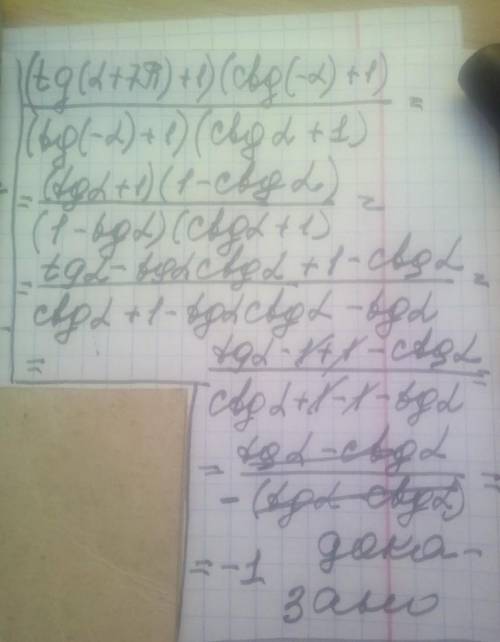 (tg(α+7π)+1)(ctg(-α)+1)
(tg(-α)+1)(ctgα+1) =
= (tgα+1)(1-ctgα)
(1-tgα)(ctgα+1) =
= tgα-tgαctgα+1-ctgα
ctgα+1-tgαctgα-tgα =
= tgα-1+1-ctgα
ctgα+1-1-tgα =
= tgα-ctgα
-(tgα-ctgα) =
=-1 дока-
зано